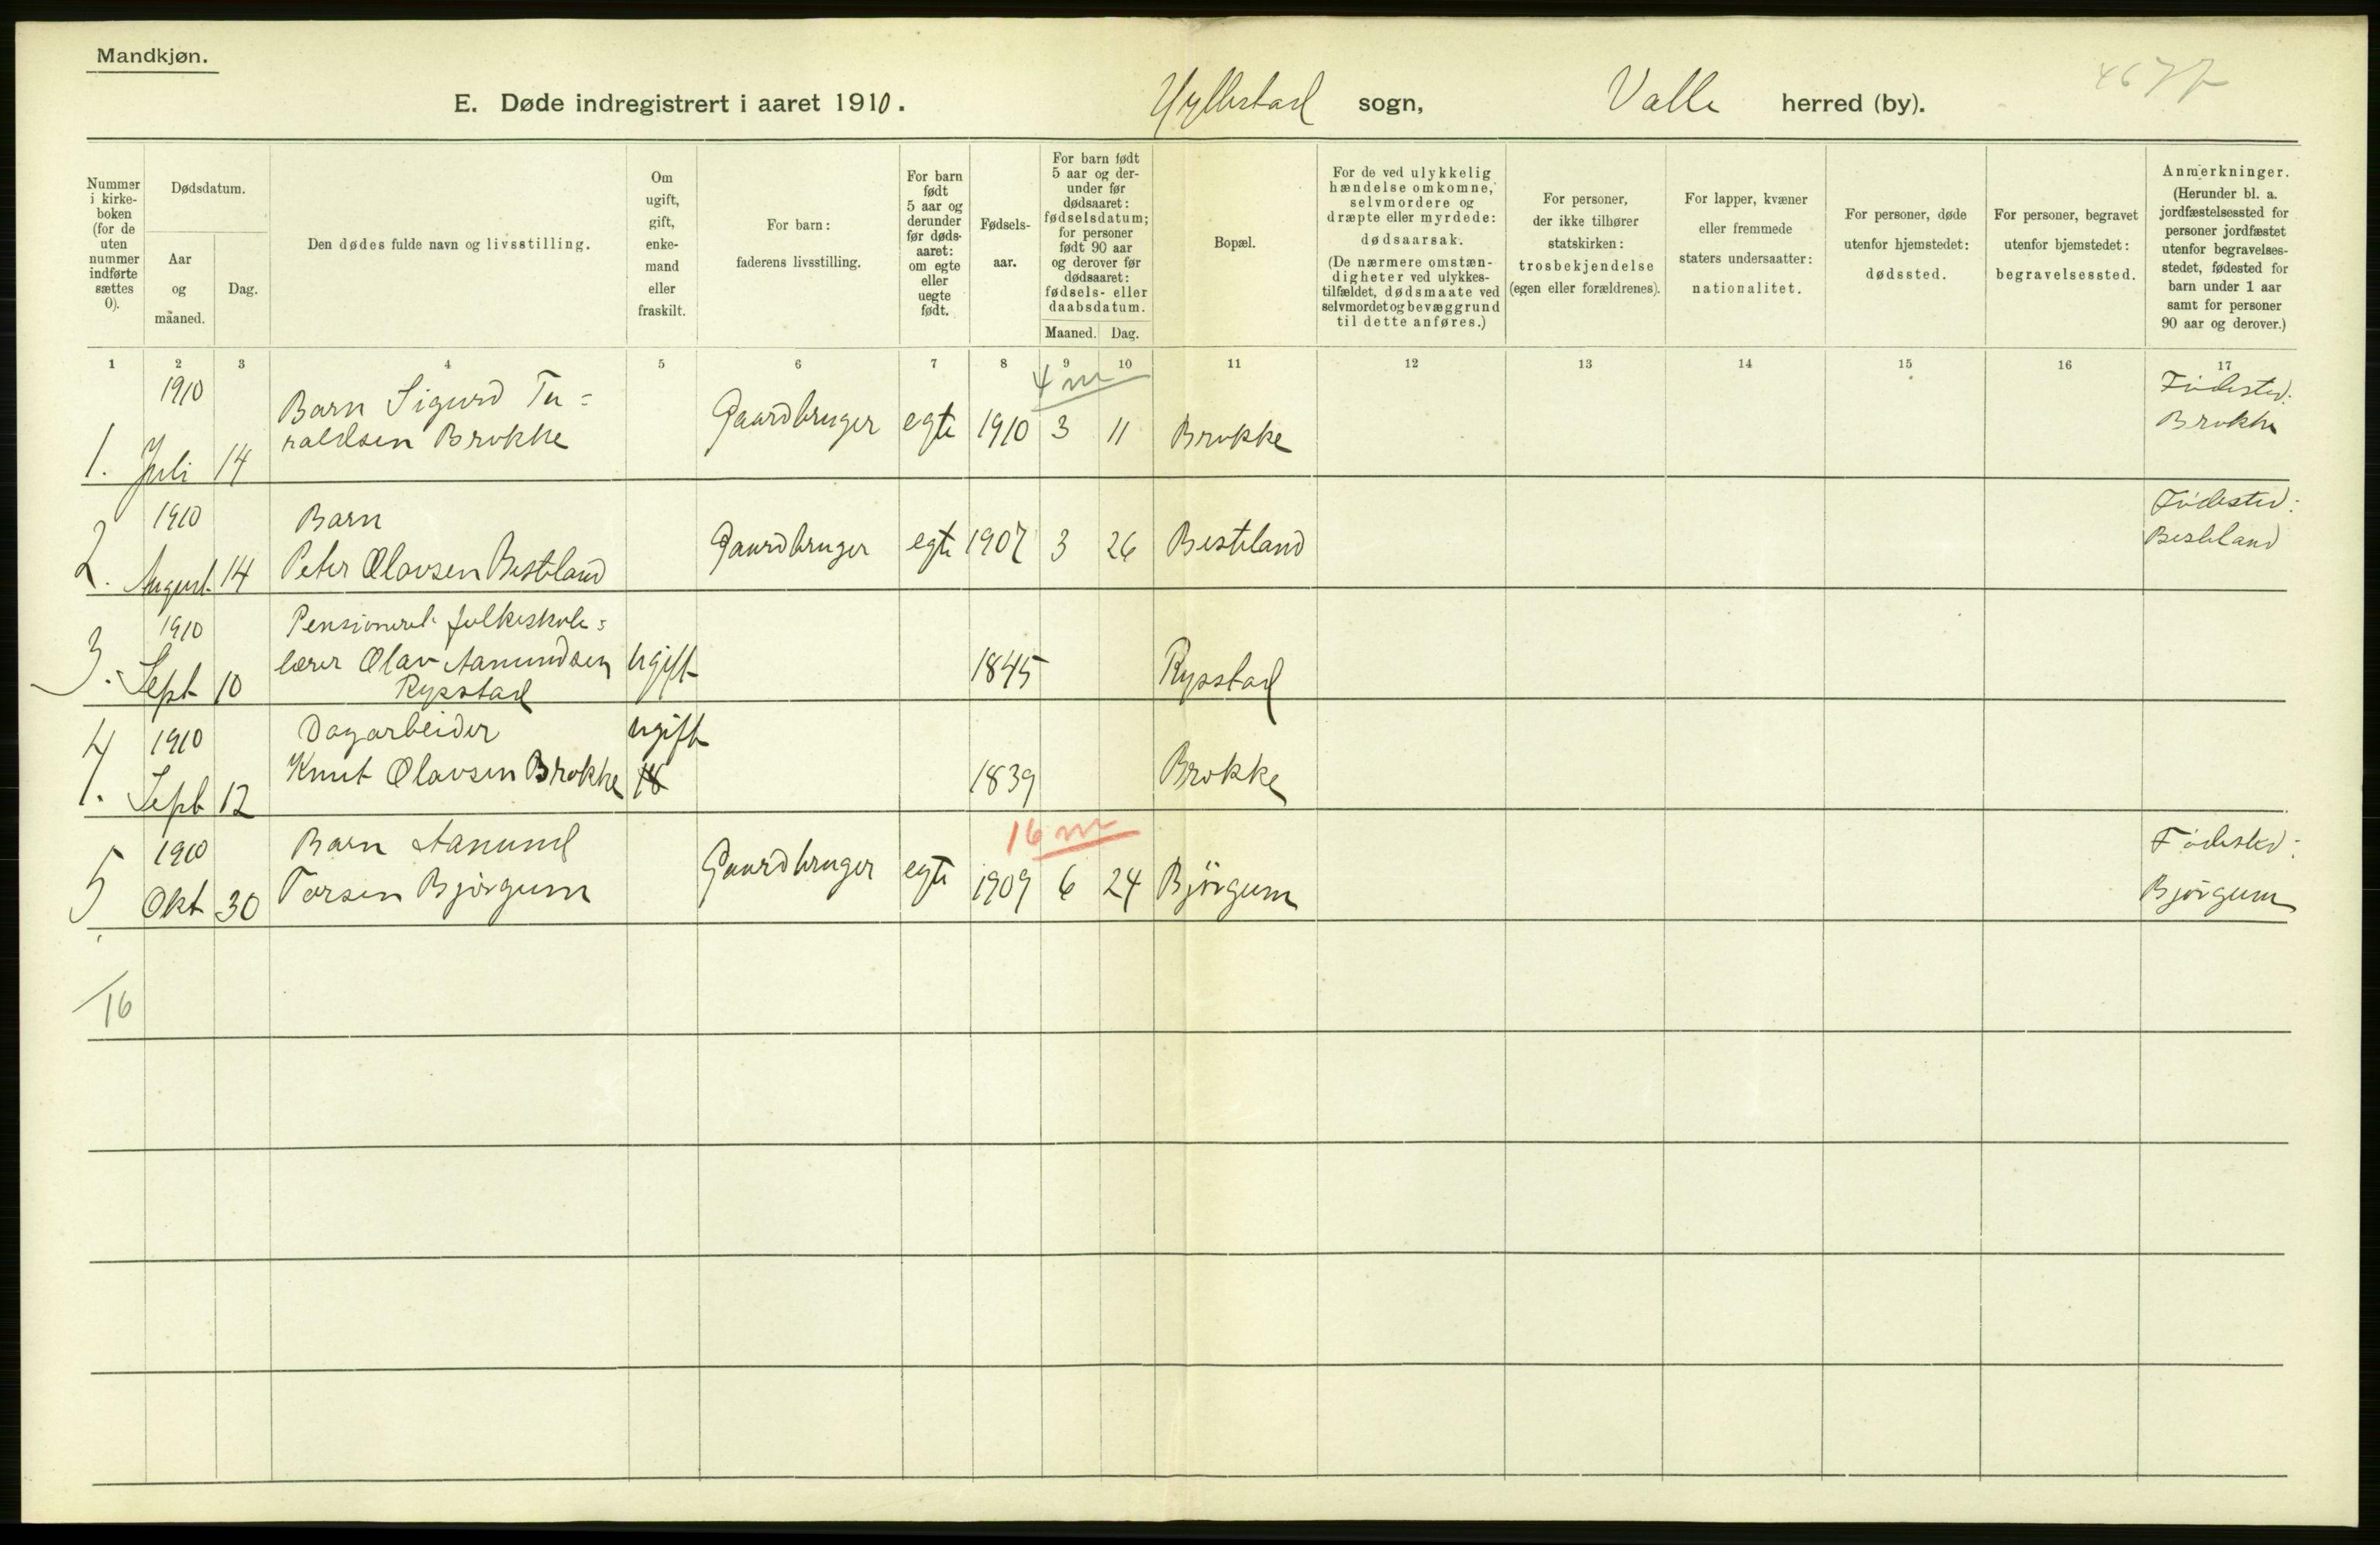 Mandkjøn.
E. Døde indregistrert i aaret 1910. Hyllestad sogn, Valle herred (by).
Nummer i kirke- boken (for de uten nummer indførte sættes 0).
Dødsdatum.
Aar og maaned.
Dag.
Den dødes fulde navn og livsstilling.
Om ugift, gift, enke- mand eller fraskilt.
For barn: faderens livsstilling.
For barn født 5 aar og derunder før døds- aaret: om egte eller uegte født.
Fødsels- aar.
For barn født 5 aar og der- under før dødsaaret: fødselsdatum; for personer født 90 aar og derover før dødsaaret: fødsels- eller daabsdatum.
Maaned. Dag.
Bopæl.
For de ved ulykkelig hændelse omkomne, selvmordere og dræpte eller myrdede: dødsaarsak. (De nærmere omstæn- digheter ved ulykkes- tilfældet, dødsmaate ved selvmordet og bevæggrund til dette anføres.)
For personer, der ikke tilhører statskirken: trosbekjendelse (egen eller forældrenes).
For lapper, kvæner eller fremmede staters undersaatter: nationalitet.
For personer, døde utenfor hjemstedet: dødssted.
For personer, begravet utenfor hjemstedet: begravelsessted.
Anmerkninger. (Herunder bl. a. jordfæstelsessted for personer jordfæstet utenfor begravelses- stedet, fødested for barn under 1 aar samt for personer 90 aar og derover.)
1 2 3 4 5 6 7 8 9 10 11 12 13 14 15 16 17
4 m
1910 Barn Sigurd Ta= Fødested:
1. Juli 14 raldsen Brokke Gaardbruger egte 1910 3 11 Brokke Brokke
1910 Barn Fødested:
2. August 14 Peter Olavsen Besteland Gaardbruger egte 1907 3 26 Besteland Besteland
1910 Pensioneret folkeskole=
3. Sept 10 lærer Olav Aanundsen ugift 1845 Rysstad
Rysstad
1910 Dagarbeider ugift
4. Sept 12 Knut Olavsen Brokke 18 1839 Brokke
16 m
1910 Barn Aanund Fødested:
5. Okt 30 Torsen Bjørgum Gaardbruger egte 1909 6 24 Bjørgum Bjørgum
16